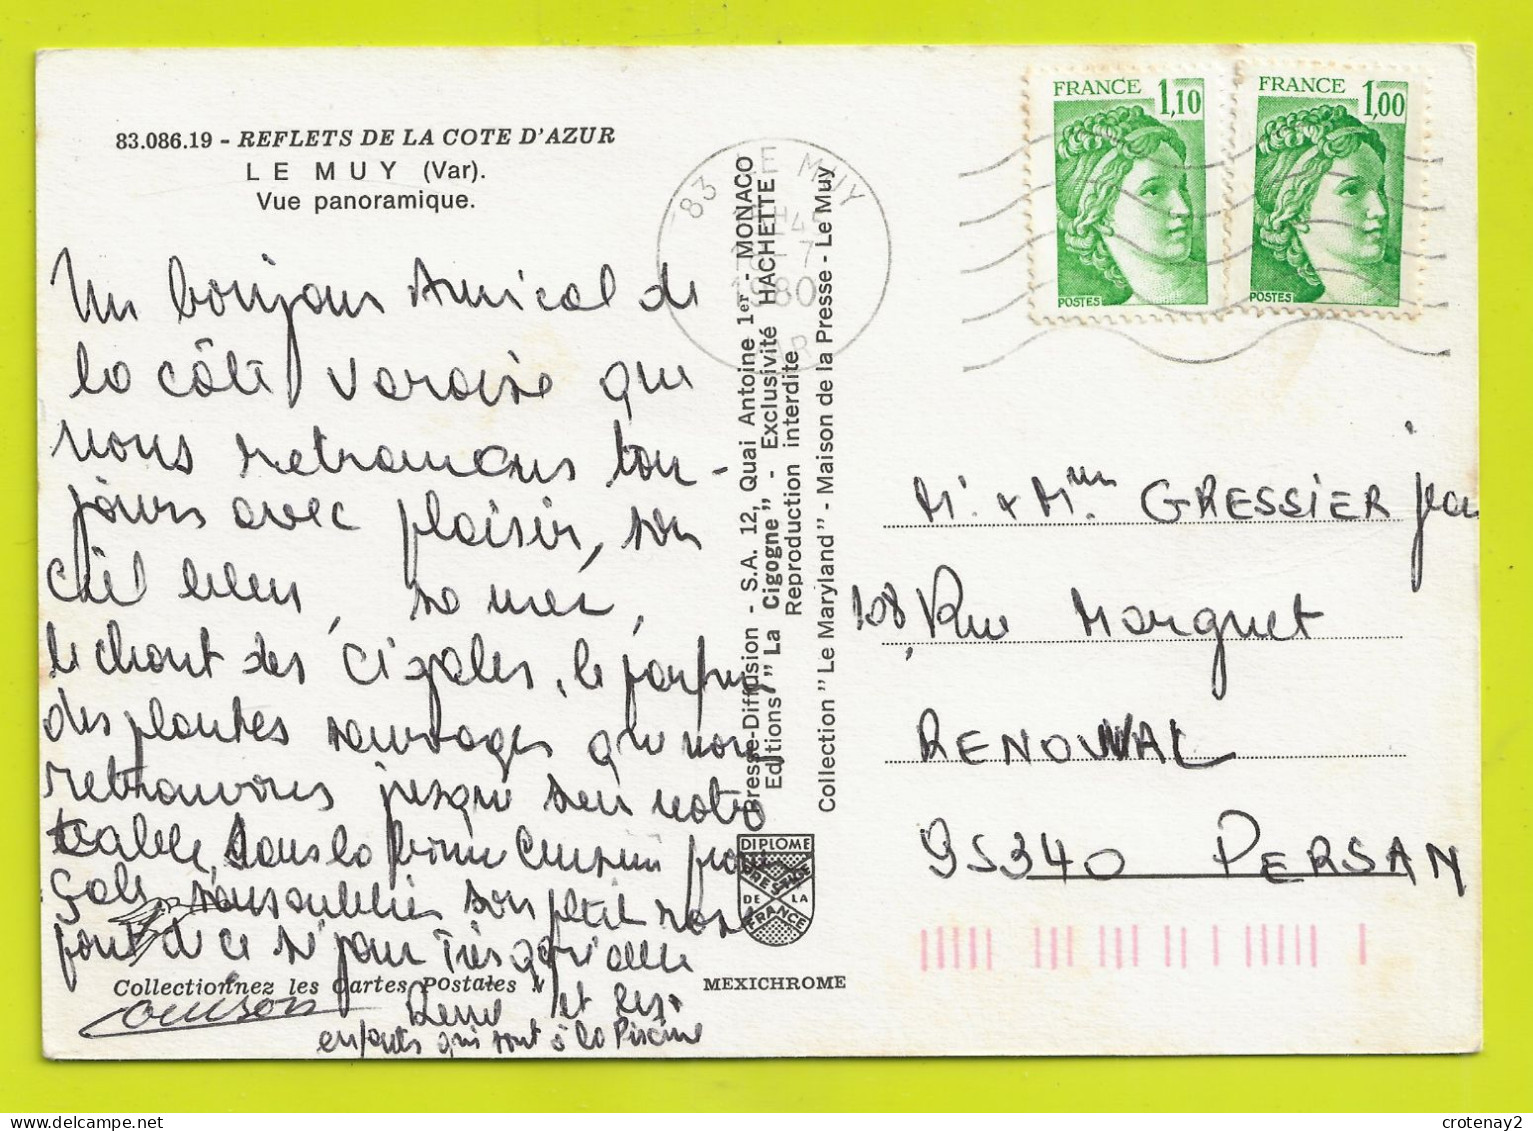 83.086.19 - REFLETS DE LA COTE D'AZUR
LE MUY (Var).
Vue panoramique.
Un bonjour Amical de
la côte varoise que
nous retrouvons tou-
jours avec plaisir, son
ciel bleu, sa mer,
le chant des cigales, le parfum
des plantes sauvages que nous
retrouvons jusque sur notre
table, dans la bonne cuisine fran
çaise, sans oublier son petit rosé
font de ce séjour très agréable
René et les
enfants qui sont à la Piscine
Collectionnez les Cartes Postales
83 LE MUY
7
1980
VAR
Presse-Diffusion - S.A. 12, Quai Antoine 1er - MONACO
Editions "La Cigogne" - Exclusivité HACHETTE
Reproduction interdite
Collection "Le Maryland" - Maison de la Presse - Le Muy
DIPLOME
PRESTIGE
DE LA
FRANCE
MEXICHROME
FRANCE 1,10
POSTES
FRANCE 1,00
POSTES
Mr & Mme GRESSIER Jean
108, Rue Marguet
RENOUVAL
95340 PERSAN
crotenay2